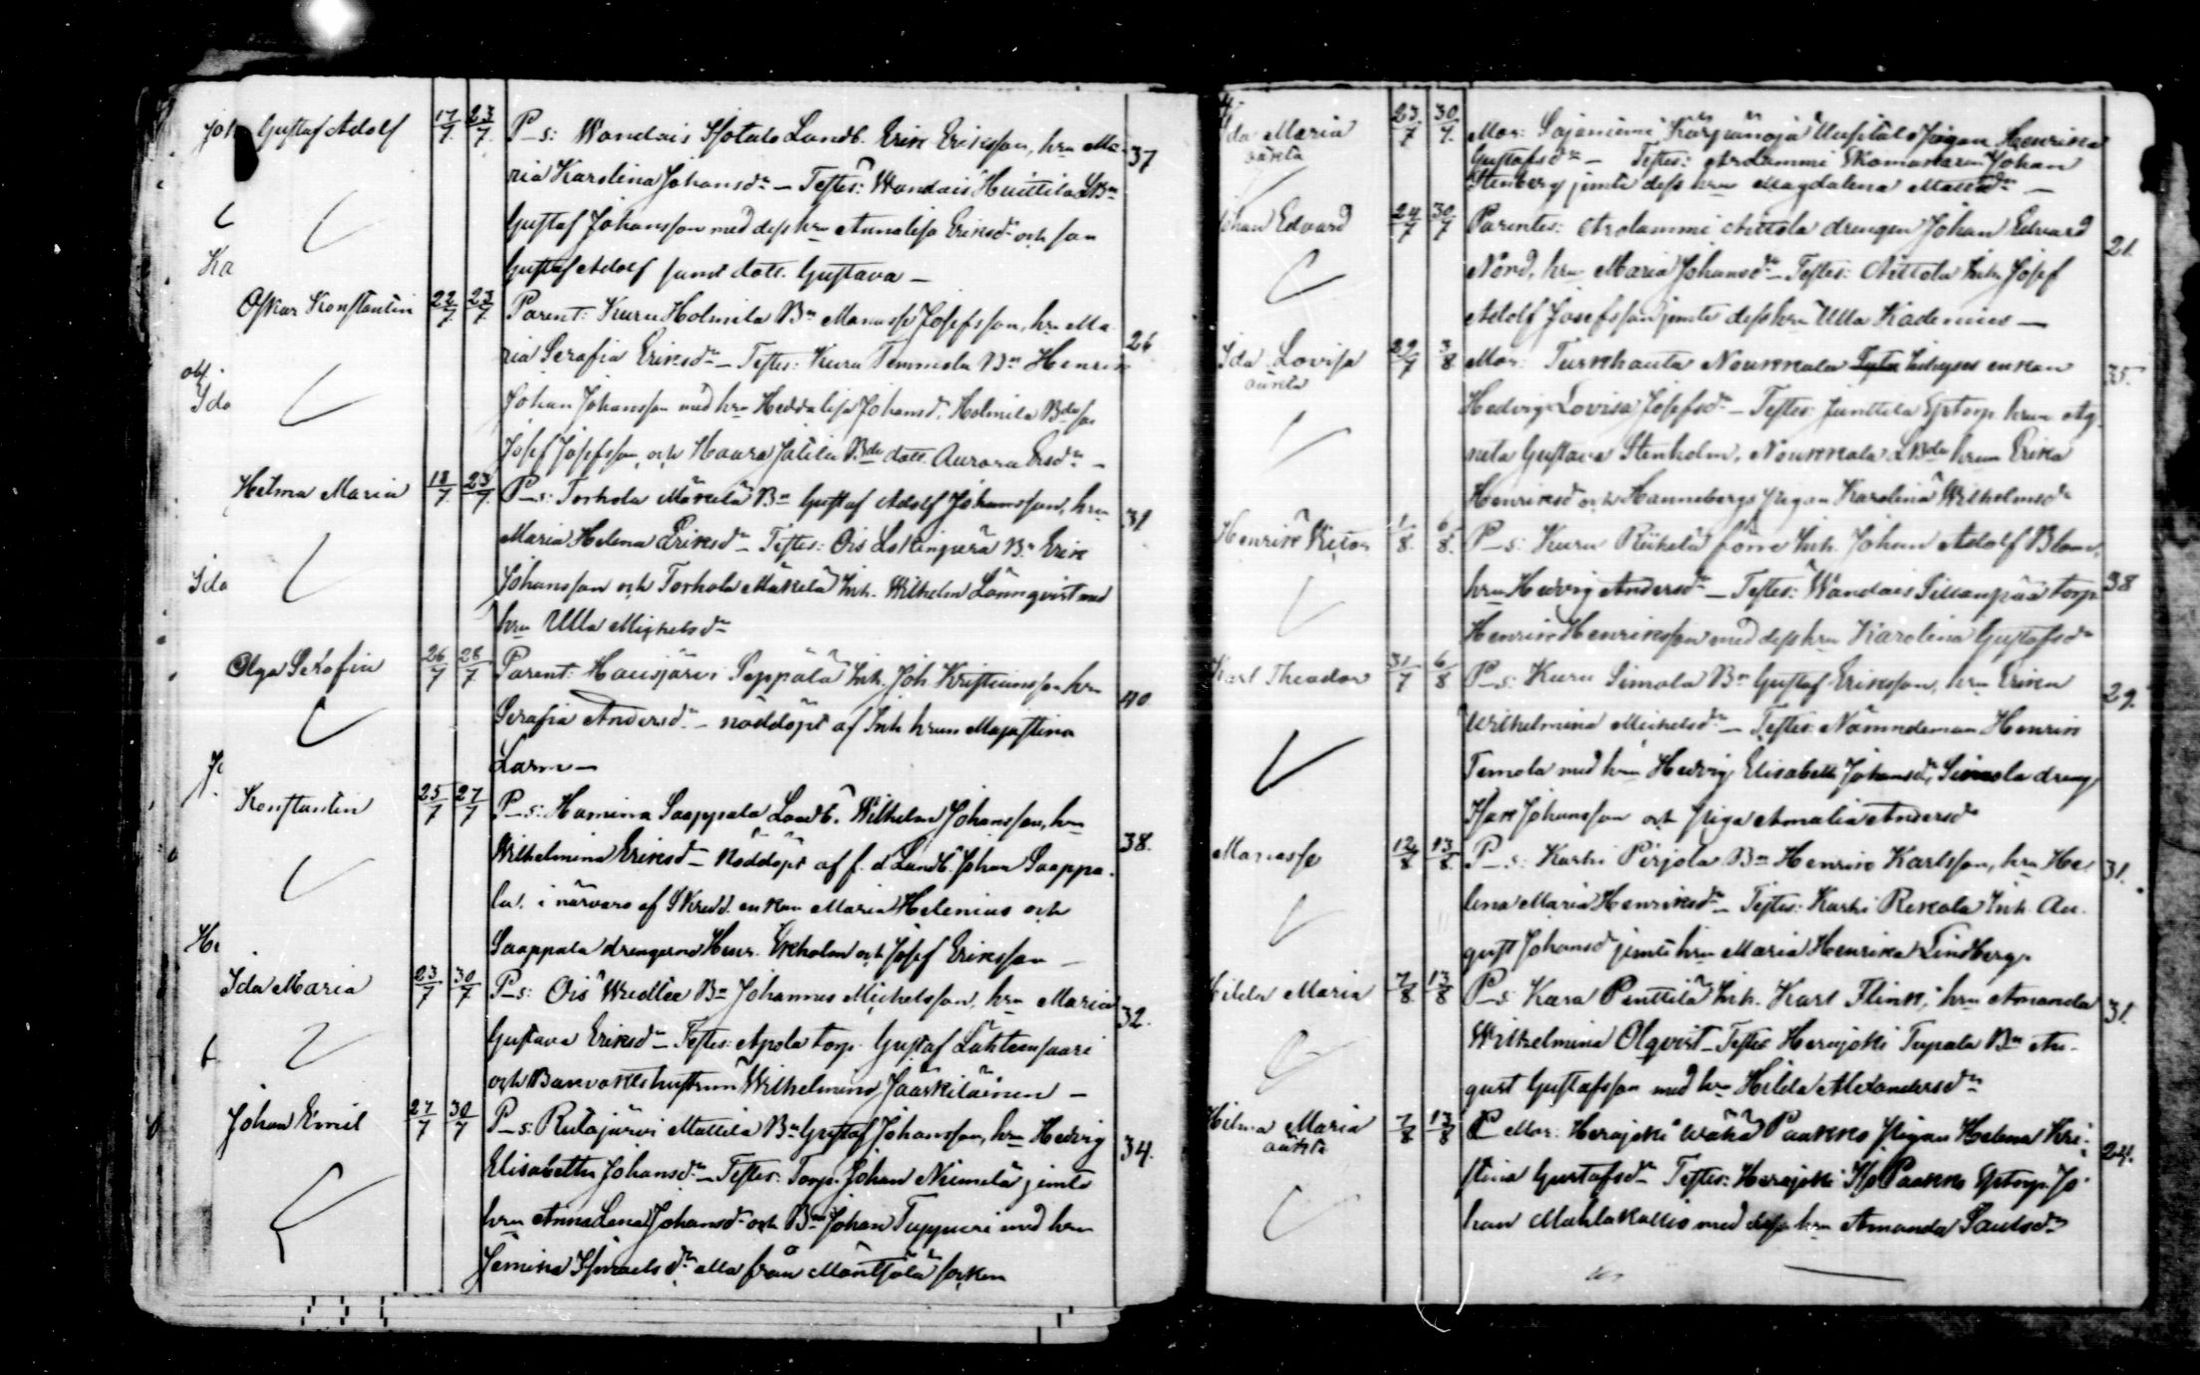 Gustaf Adolf 17/7 23/7 P_s: Wandais Isotalo Landb. Erik Eriksson, hru Ma- 37
ria Karolina Johansdr — Testes: Wandais Huittila LBn
Gustaf Johansson med dess hru Annalisa Eriksdr och son
Gustaf Adolf samt dott. Gustava —
Oskar Konstantin 22/7 23/7 Parent: Kuru Holmila Bn Manasse Josefsson, hru Ma- 26
ria Serafia Eriksdr — Testes: Kuru Temmola Bn Henrik
Johan Johansson med hru Heddalisa Johansd. Holmila Bde son
Josef Josefsson och Haara Jätilä Bde dott. Aurora Ersdr —
Helma Maria 18/7 23/7 P_s: Torhola Mäkelä Bn Gustaf Adolf Johansson, hru 31
Maria Helena Eriksdr — Testes: Ois Bn Erik
Johansson och Torhola Mäkelä Inh. Wilhelm Lönnqvist med
hru Ulla Mickelsdr
Olga Serafia 26/7 28/7 Parent: Hausjärvi Seppälä Inh. Joh. Kristiansson hru 40
Serafia Andersdr — nöddöpt af Inh hrun Majastina
Larm —
Konstantin 25/7 27/7 P_s: Hamina Saappala Landb. Wilhelm Johansson, hru 38.
Wilhelmina Eriksdr — Nöddöpt af f. d. Landb. Johan Saappa-
la. i närvaro af Skredd. enkan Maria Helenius och
Saappala drengarne Henr. Ekholm och Josef Eriksson —
Ida Maria 23/7 30/7 P_s: Ois Wredlee Bn Johannes Mickelsson, hru Maria 32.
Gustava Eriksdr — Testes: Apola torp. Gustaf Lähteensaari
och Banvaktshustrun Wilhelmina Jääskiläinen —
Johan Emil 27/7 30/7 P_s: Rutajärvi Mattila Bn Gustaf Johansson, hru Hedvig 34.
Elisabeth Johansdr — Testes: Torp. Johan Niemelä jemte
hru Anna Lena Johansdr och Bn Johan Tuppuri med hru
Jemina Ismaelsdr alla från Mäntsälä socken
Ida Maria 23/7 30/7 Mor: Sajaniemi Karpanoja Pigan Henrika
oäkta Gustafsdr — Testes: Arolammi Skomakaren Johan
Stenberg jemte dess hru Magdalena Mattsdr —
Johan Edvard 24/7 30/7 Parentes: Arolammi Aittola drengen Johan Edvard 21.
Nord, hru Maria Johansdr — Testes: Aittola Inh. Josef
Adolf Josefsson jemte dess hru Ulla Kadenius —
Ida Lovisa 29/7 3/8 Mor: Turkhauta Noukkala Inhyses enkan 35.
oäkta Hedvig Lovisa Josefsdr — Testes: Junttila Sptorp. hrun Ag-
neta Gustava Stenholm, Noukkala LBde hrun Erika
Henriksdr och Hannebergs pigan Karolina Wilhelmsdr
Henrik Victor 1/8 6/8 P_s: Kuru Riikelä förre Inh. Johan Adolf Blom, 38
hru Hedvig Andersdr — Testes: Wandais Sillanpää torp.
Henrik Henriksson med dess hru Karolina Gustafsdr
Karl Theodor 31/7 6/8 P_s: Kuru Simola Bn Gustaf Eriksson, hru Erika 29.
Wilhelmina Mickelsdr — Testes: Nämndeman Henrik
Temola med hru Hedvig Elisabeth Johansdr, Simola dreng
Isak Johansson och Piga Amalia Andersdr
Manasse 12/8 13/8 P_s: Karhi Pirjola Bn Henrik Karlsson, hru He- 31.
lena Maria Henriksdr — Testes: Karhi Rekola Inh. Au-
gust Johansd jemte hru Maria Henrika Lindberg.
Hilda Maria 7/8 13/8 P_s: Kara Penttilä Inh. Karl Flink, hru Amanda 31.
Wilhelmina Olqvist — Testes Herajoki Tupala Bn Au-
gust Gustafsson med hru Hilda Alexandersdr
Hilma Maria 7/8 13/8 Mor: Herajoki Wähä Paakko Pigan Helena Kri- 24.
oäkta stina Gustafsdr Testes: Herajoki Iso Paakko Sptorp. Jo-
han Mahlakallio med dess hru Amanda Saulsdr